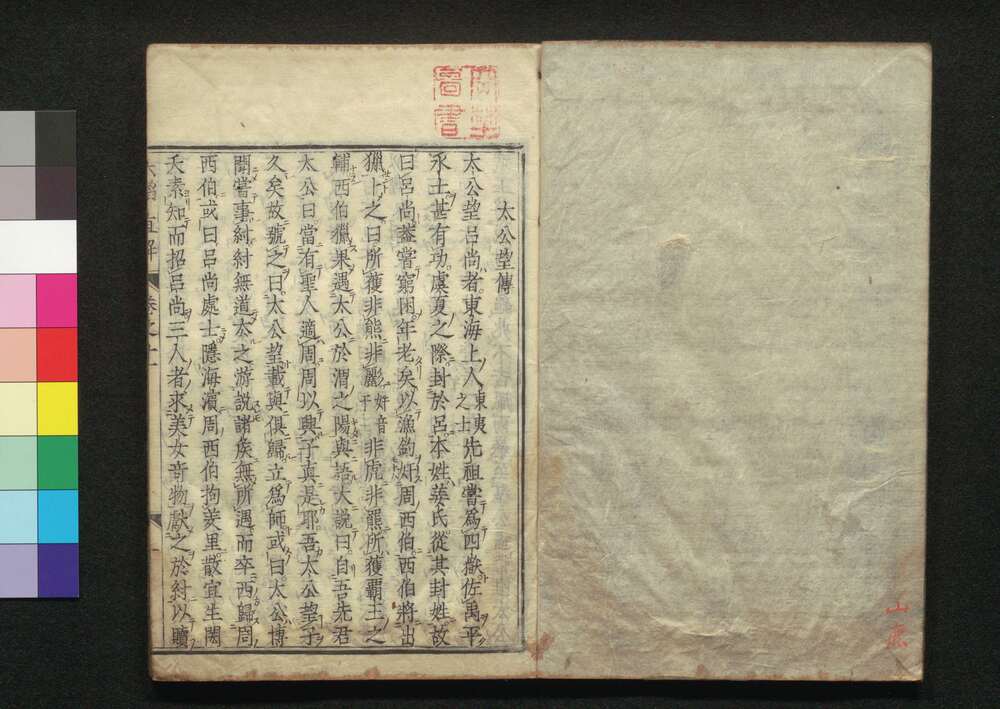 太公望傳
太公望呂尚者東海上人東夷之士先祖嘗爲四嶽佐禹平
水土甚有功虞夏之際封於呂本姓姜氏從其封姓故
曰呂尚蓋嘗窮困年老矣以漁釣奸周西伯西伯將出
獵卜之曰所獲非熊非彲音非虎非羆所獲覇王之
輔西伯獵果遇太公於渭之陽與語大説曰自吾先君
太公曰當有聖人適周周以興子真是耶吾太公望子
久矣故號之曰太公望載與俱歸立爲師或曰太公博
聞嘗事紂紂無道去之游説諸侯無所遇而卒西歸周
西伯或曰呂尚處士隱海濵周西伯拘羑里散宜生閎
夭素知而招呂尚三人者求美女竒物獻之於紂以贖
直解
山